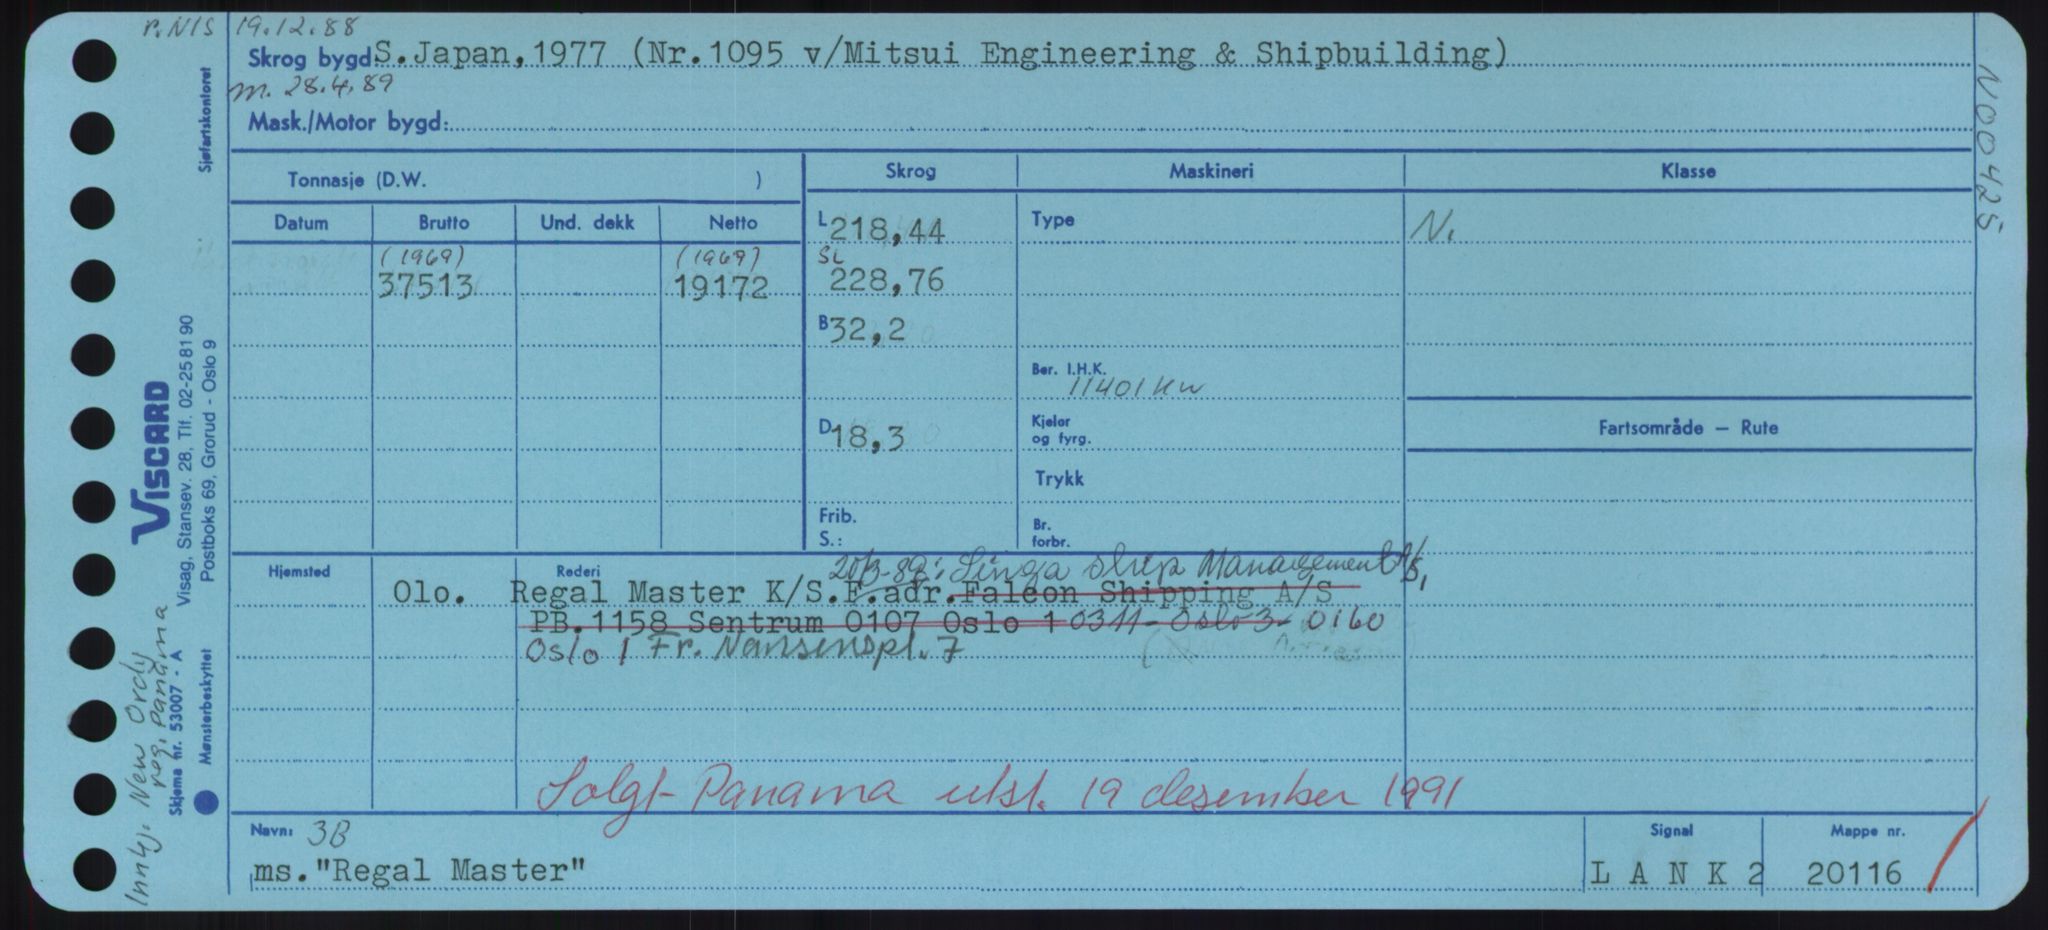 r. NIS 19.12.88
Skrog bygd S. Japan, 1977 (Nr. 1095 v/Mitsui Engineering & Shipbuilding)
m. 28.4.89
Mask./Motor bygd:
Tonnasje (D.W. )
Skrog Maskineri Klasse
Datum Brutto Und. dekk Netto
L 218,44 Type N.
(1969) (1969) SL
37513 19172 228,76
B 32,2
Ber. I.H.K.
11401 KW
D 18,3 Kjeler
og fyrg.
Fartsområde — Rute
Trykk
Frib.
S.:
Br.
forbr.
Hjemsted Rederi 20/3-89: Singa Ship Management A/S,
Olo. Regal Master K/S.F.adr.Falcon Shipping A/S
PB.1158 Sentrum 0107 Oslo 1 0311 - Oslo 3 - 0160
Oslo 1 Fr. Nansenspl. 7
Solgt Panama utst. 19 desember 1991
Navn: 3B
ms."Regal Master"
Signal
L A N K 2
Mappe nr.
20116
N00425
Sjøfartskontoret
VISCARD
Visag, Stansev. 28, Tlf. 02-25 81 90
Postboks 69, Grorud - Oslo 9
Skjema nr. 53007 - A
Mønsterbeskyttet
Innkj: New Ordy
reg. Panama